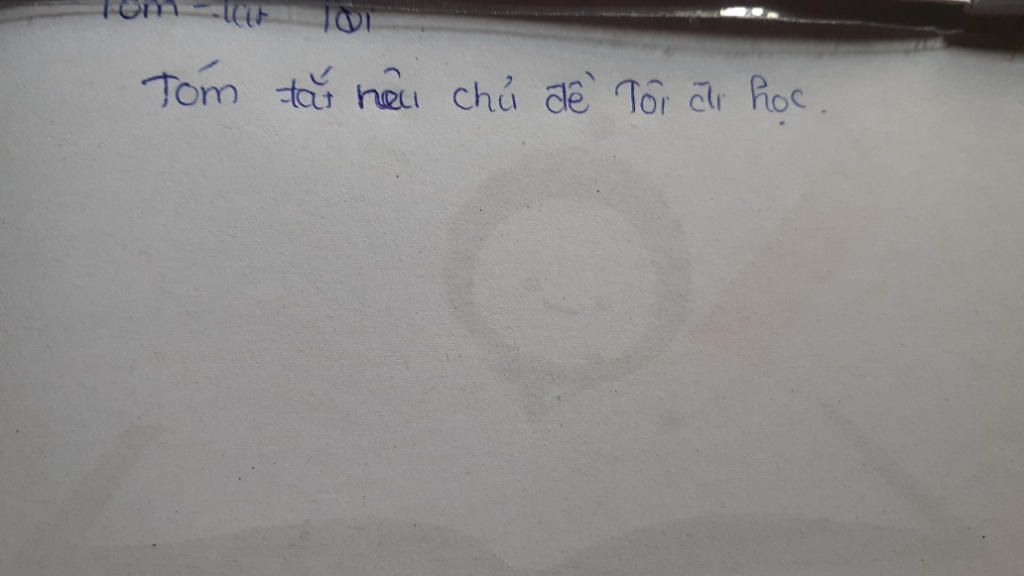 Tóm tắt Tôi
Tóm tắt nêu chủ đề Tôi đi học.